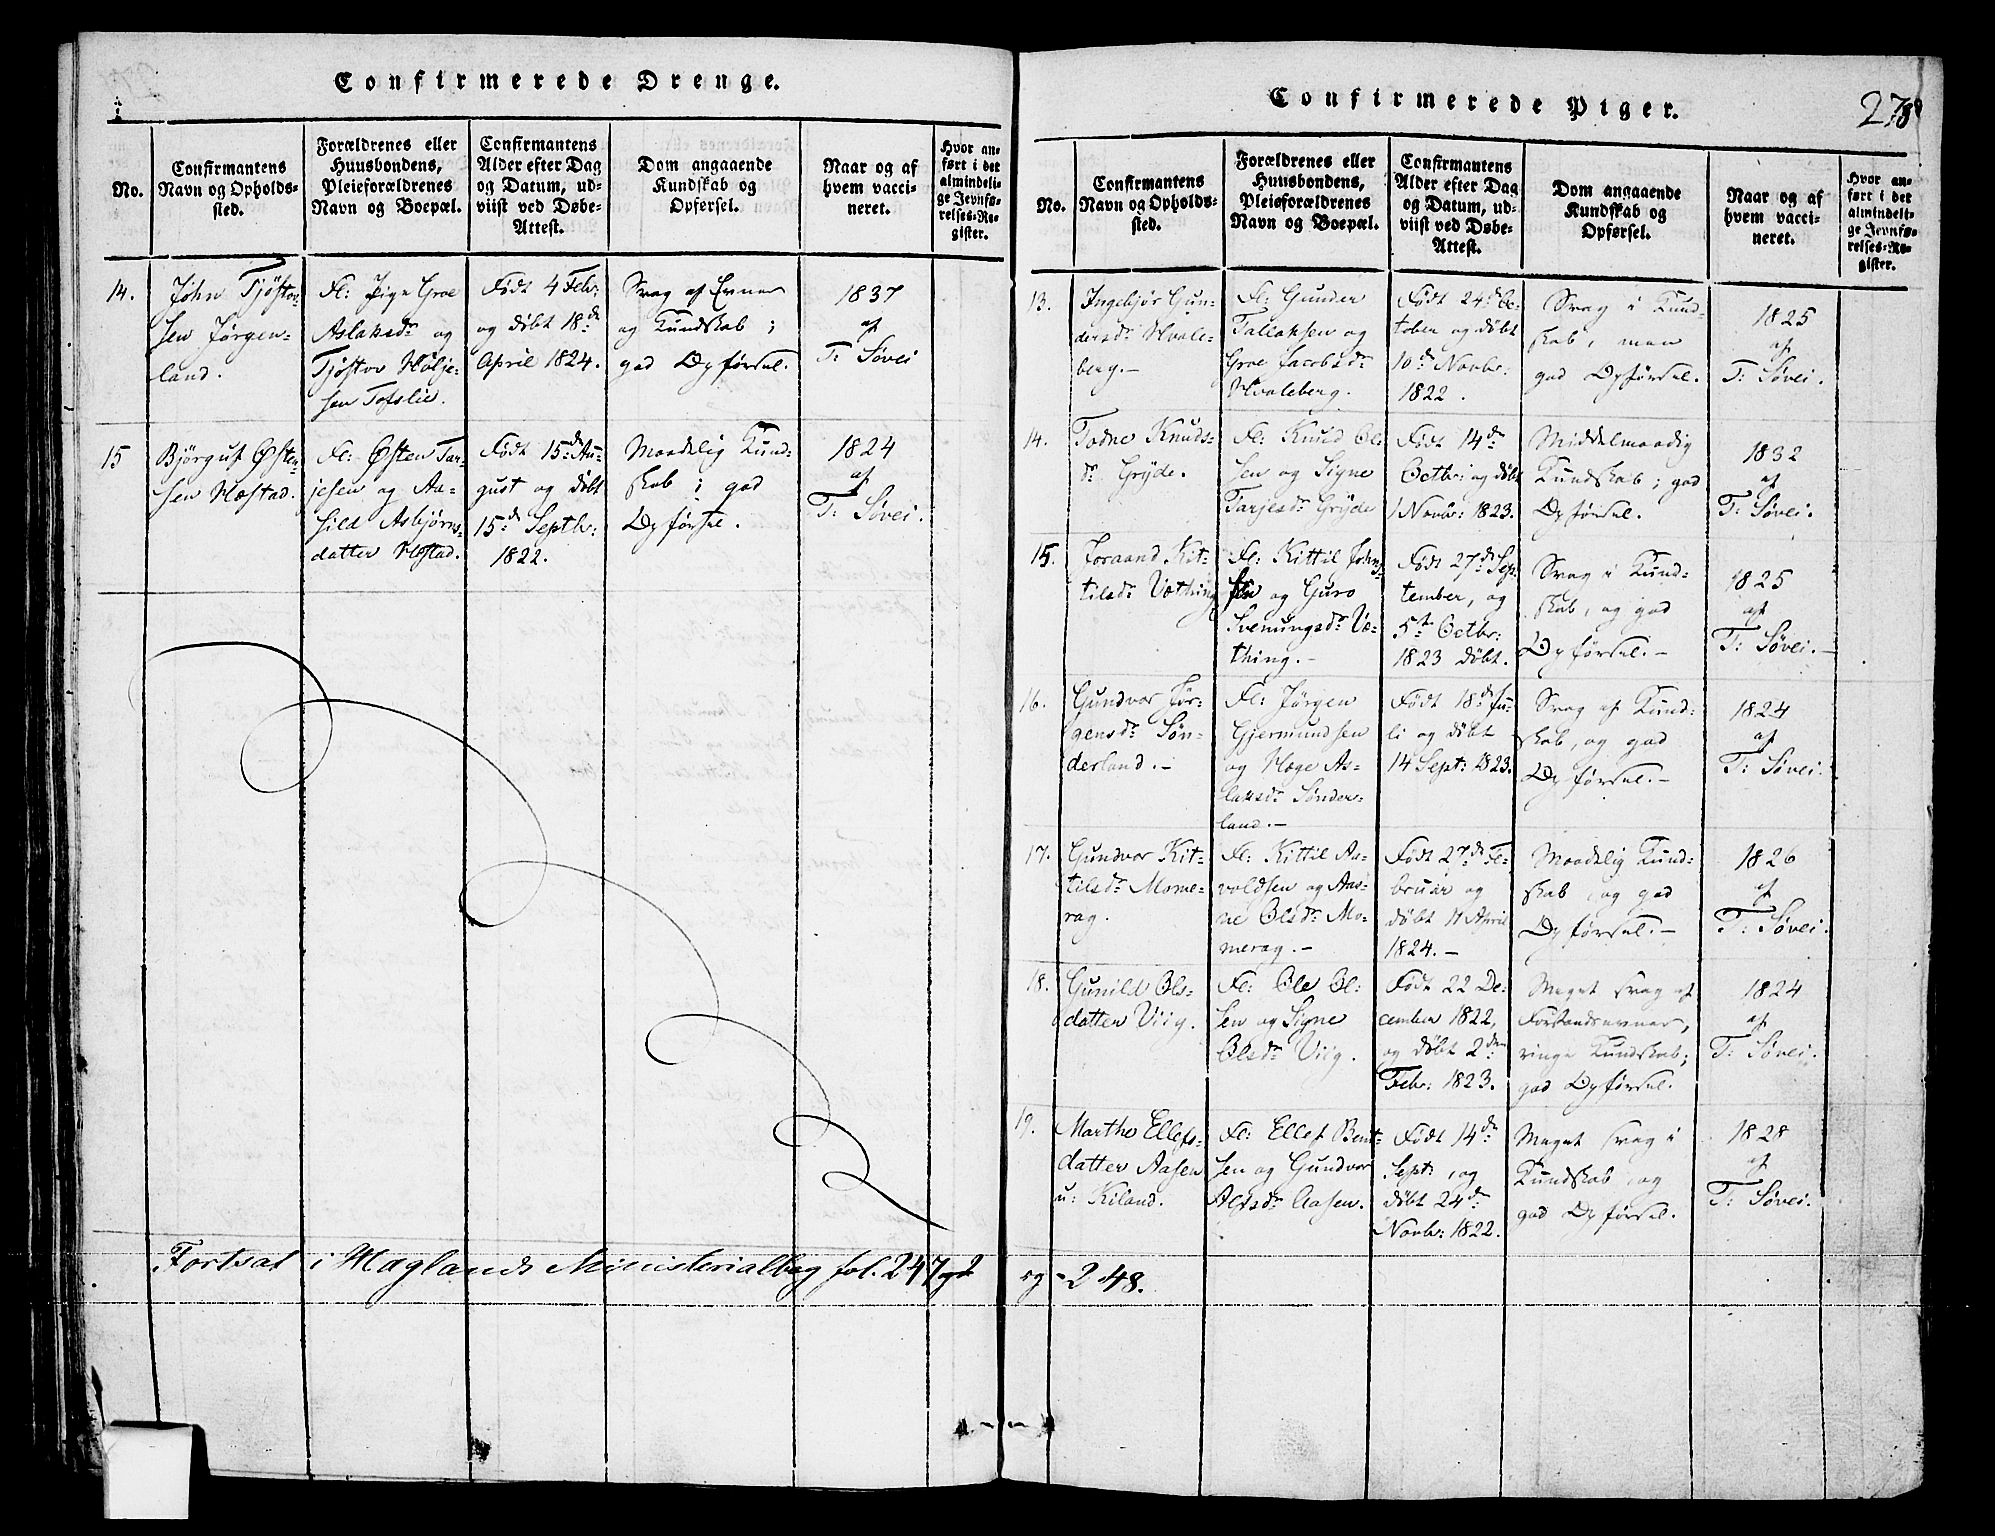 Confirmerede Drenge.
No.
Confirmantens
Navn og Opholds-
sted.
Forældrenes eller
Huusbondens,
Pleieforældrenes
Navn og Boepæl.
Confirmantens
Alder efter Dag
og Datum, ud-
viist ved Døbe-
Attest.
Dom angaaende
Kundskab og
Opførsel.
Naar og af
hvem vacci-
neret.
Hvor an-
ført i det
almindeli-
ge Jevnfø-
relses-Re-
gister.
14.
John Tjøstov-
sen Jørgen-
land.
Fl: Pige Groe
Aslaksdr og
Tjøstov Holje-
sen Tofslie.
Født 4 Febr:
og døbt 18de
April 1824.
Svag af Evner
og Kundskab;
god Opførsel.
1837
af
T: Søvei
15
Bjørguf Østen-
sen Hæstad.
Fl: Østen Tar-
jesen og Aa-
sild Asbjørns-
datter Hæstad.
Født 15de Au-
gust og døbt
15de Septbr:
1822.
Maadelig Kund-
skab; god
Opførsel.
1824
af
T: Søvei.
Fortsat i Høglands Ministerialbog fol. 247
og 248.
Confirmerede Piger.
278
No.
Confirmantens
Navn og Opholds-
sted.
Forældrenes eller
Huusbondens,
Pleieforældrenes
Navn og Boepæl.
Confirmantens
Alder efter Dag
og Datum, ud-
viist ved Døbe-
Attest.
Dom angaaende
Kundskab og
Opførsel.
Naar og af
hvem vacci-
neret.
Hvor an-
ført i det
almindeli-
ge Jevnfø-
relses-Re-
gister.
13.
Ingebjør Gun-
dersdr Hvale-
berg.-
Fl: Gunder
Tallaksen og
Groe Jacobsdr
Hvaleberg.
Født 24de Oc-
tober og døbt
10de Novbr:
1822.
Svag i Kund-
skab, men
god Opførsel.
1825
af
T: Søvei.
14.
Todne Knuds-
dr Gryde.
Fl: Knud Ol-
sen og Signe
Tarjesdr Gryde
Født 14de
Octbr: og døbt
1 Novbr: 1823.
Middelmaadig
Kundskab; god
Opførsel.
1832
af
T: Søvei.
15.
Joraand Kit-
tilsdr Væthing
Fl: Kittil John-
sen og Guro
Svenungsdr Væ-
thing.-
Født 27de Sep-
tember, og
5te Octbr:
1823 døbt.
Svag i Kund-
skab, og god
Opførsel.-
1825
af
T: Søvei.-
16.
Gundvor Jør-
gensdr Søn-
derland.-
Fl: Jørgen
Gjermundsen
og Hæge As-
laksdr Sønder-
land.-
Født 18de Ju-
li og døbt
14 Sept: 1823.
Svag af Kund-
skab, og god
Opførsel.-
1824
af
T: Søvei.
17.
Gundvor Kit-
tilsdr Mome-
rag.
Fl: Kittil Aa-
voldsen og Aas-
ne Olsdr Mo-
merag.-
Født 27de Fe-
bruar og
døbt 11 April
1824.-
Maadelig Kund-
skab, og god
Opførsel.-
1826
af
T: Søvei.
18.
Gunild Ols-
datter Viig.
Fl: Ole Ol-
sen og Signe
Olsdr Viig.
Født 22 De-
cember 1822,
og døbt 2den
Febr: 1823.
Meget svag af
Forstandsevner,
ringe Kundskab;
god Opførsel.
1824
af
T: Søvei.
19.
Marthe Ellefs-
datter Aasen
u: Kiland.
Fl: Ellef Bent-
sen og Gundvor
Alfsdr Aasen.
Født 14de
Sept:, og
døbt 24de
Novbr: 1822.
Meget svag i
Kundskab, og
god Opførsel.
1828
af
T: Søvei.